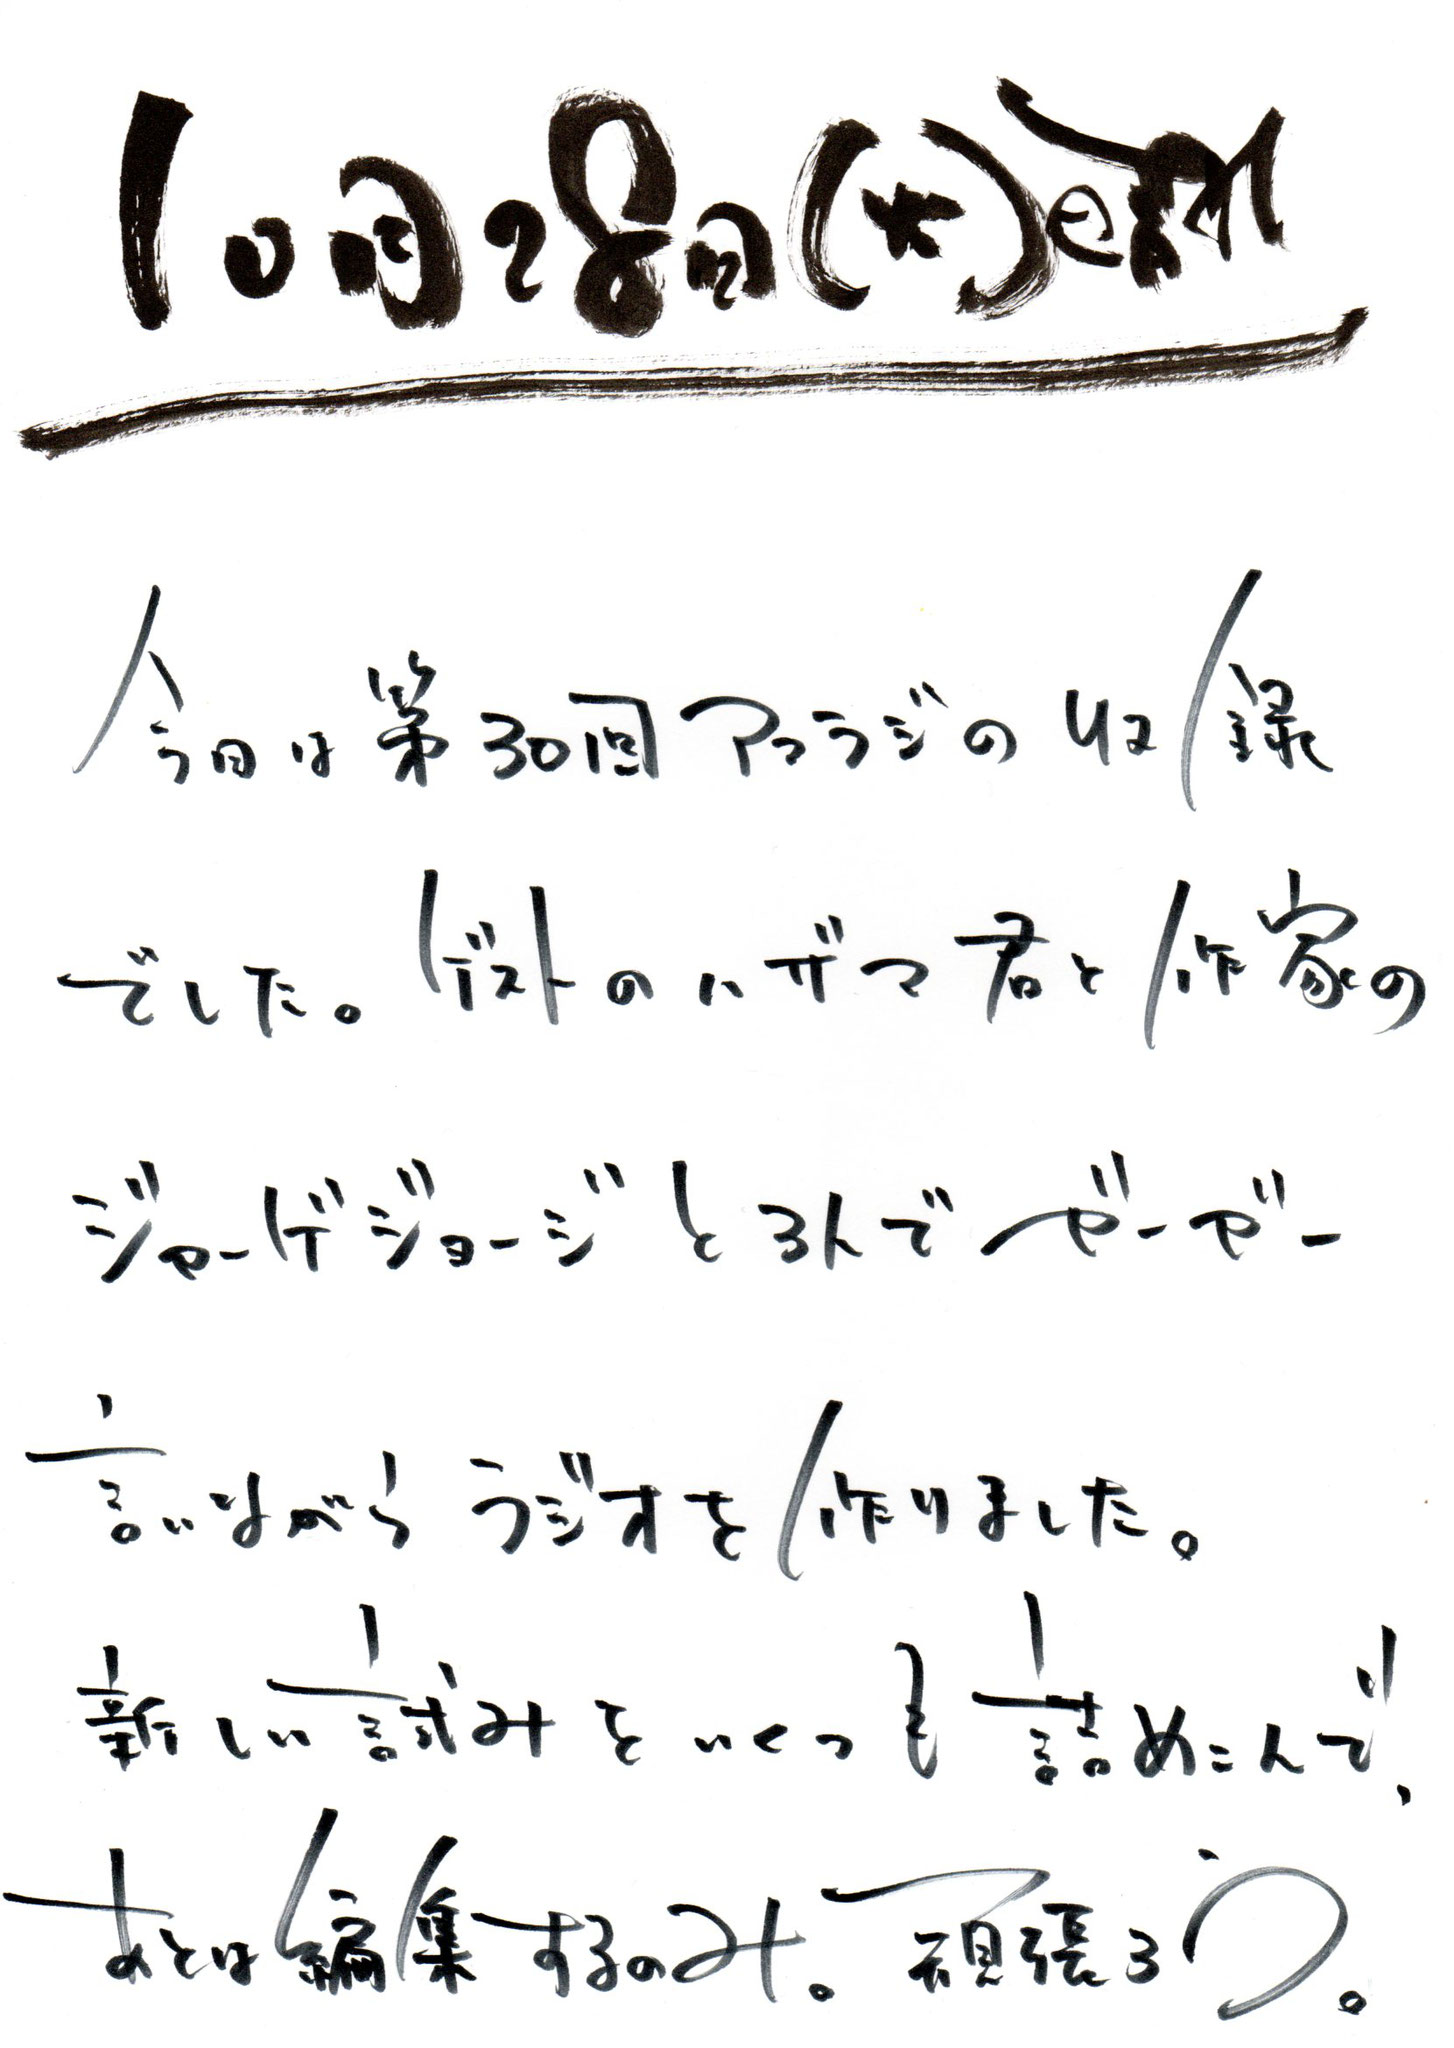 10月28日(火)
今日は第30回アコラジの収録
でした。ゲストのハザマ君と作家の
ジャーゲジョージと3人でぜーぜー
言いながらラジオを作りました。
新しい試みをいくつも詰めこんで、
あとは編集するのみ。頑張ろう。